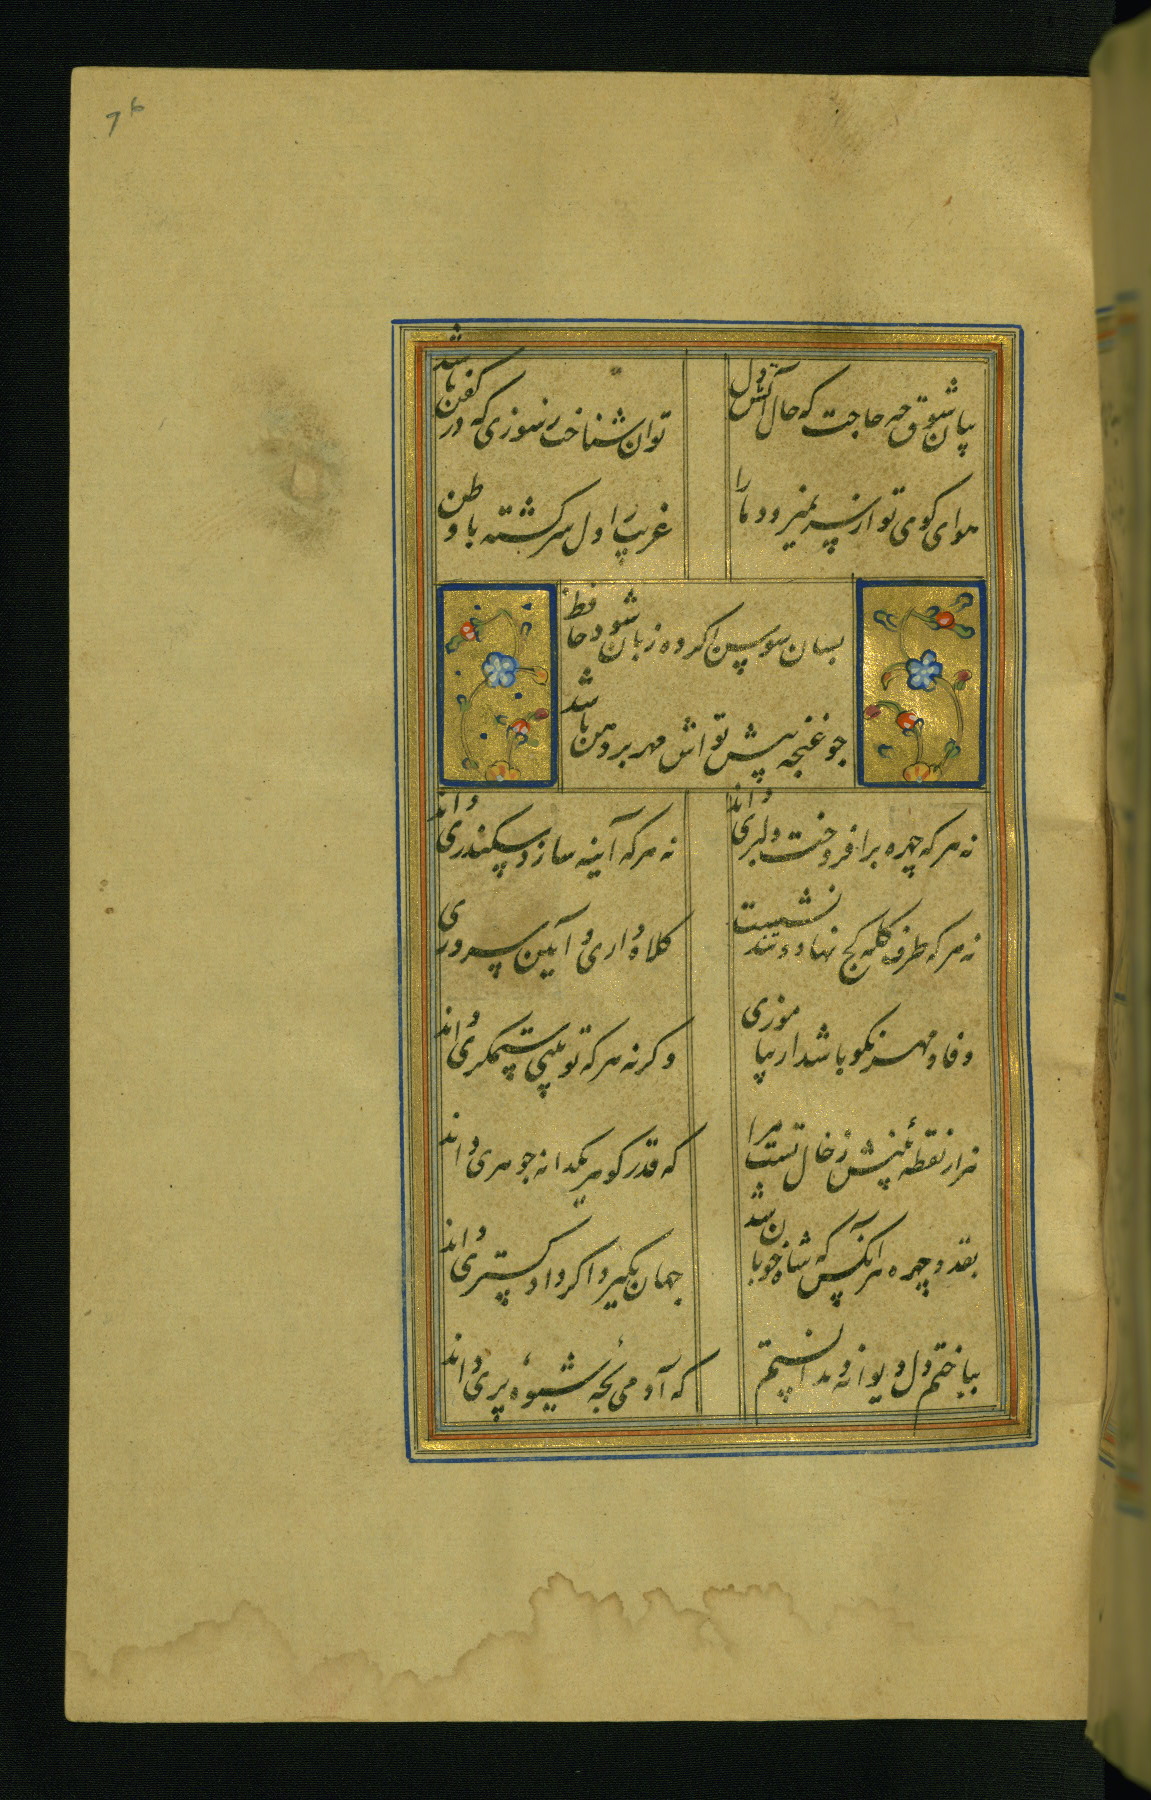 76
بیان شوق چه حاجت که حال آتش دل
توان شناخت ز سوزی که در کفن باشد
هوای کوی تو از سر نمیرود ما را
غریب را دل سرگشته با وطن
بسان سوسن اگر ده زبان شود حافظ
چو غنچه پیش تو اش مهر بر دهن باشد
نه هرکه چهره برافروخت دلبری داند
نه هرکه آینه سازد سکندری داند
نه هرکه طرف کله کج نهاد و تند نشست
کلاه داری و آیین سروری
وفا و مهر نکو باشد ار بیاموزی
وگرنه هرکه تو بینی ستمگری داند
هزار نقطه بینش ز خال تست مرا
که قدر گوهر یکدانه جوهری داند
بقد و چهره هر آنکس که شاه خوبان شد
جهان بگیرد اگر دادگستری داند
بباختم دل دیوانه و ندانستم
که آدمی بچه شیوه پری داند